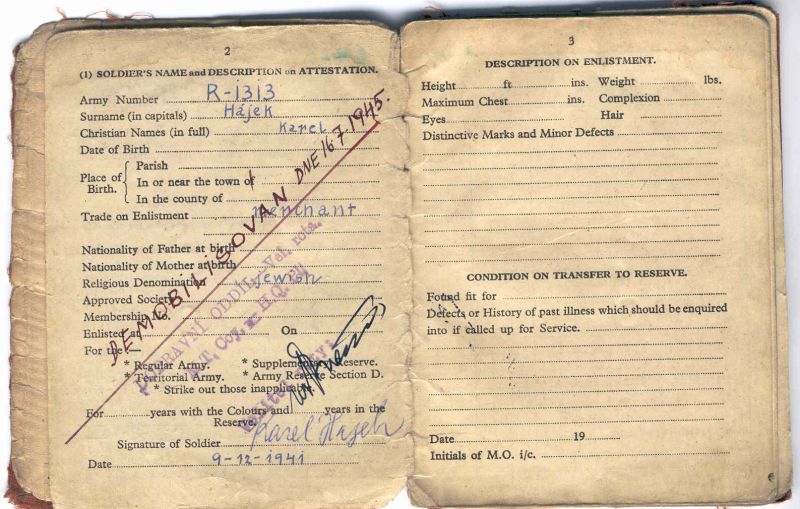 2
(1) SOLDIER'S NAME and DESCRIPTION on ATTESTATION.
Army Number R-1313
Surname (in capitals) Hájek
Christian Names (in full) Karel
Date of Birth
Place of Birth.
Parish
In or near the town of
In the county of
Trade on Enlistment Merchant
Nationality of Father at birth
Nationality of Mother at birth
Religious Denomination Jewish
Approved Society
Membership No.
Enlisted at On
For the :—
* Regular Army. * Supplementary Reserve.
* Territorial Army. * Army Reserve Section D.
* Strike out those inapplicable.
For years with the Colours and years in the
Reserve.
Signature of Soldier Karel Hajek
Date 9-12-1941
DEMOBILISOVAN DNE 16 7 1945.
3
DESCRIPTION ON ENLISTMENT.
Height ft ins. Weight lbs.
Maximum Chest ins. Complexion
Eyes Hair
Distinctive Marks and Minor Defects
CONDITION ON TRANSFER TO RESERVE.
Found fit for
Defects or History of past illness which should be enquired
into if called up for Service.
Date 19
Initials of M.O. i/c.